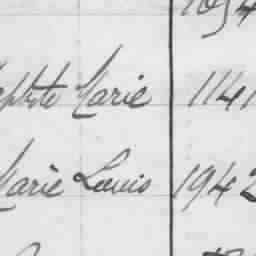 aptiste Marie 1141
Marie Louis 1942